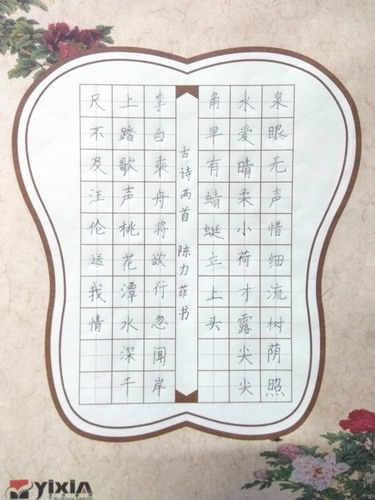 泉眼无声惜细流树荫照
水爱晴柔小荷才露尖尖
角早有蜻蜓立上头
古诗两首 陈力菲书
李白乘舟将欲行忽闻岸
上踏歌声桃花潭水深千
尺不及汪伦送我情
YIXIA